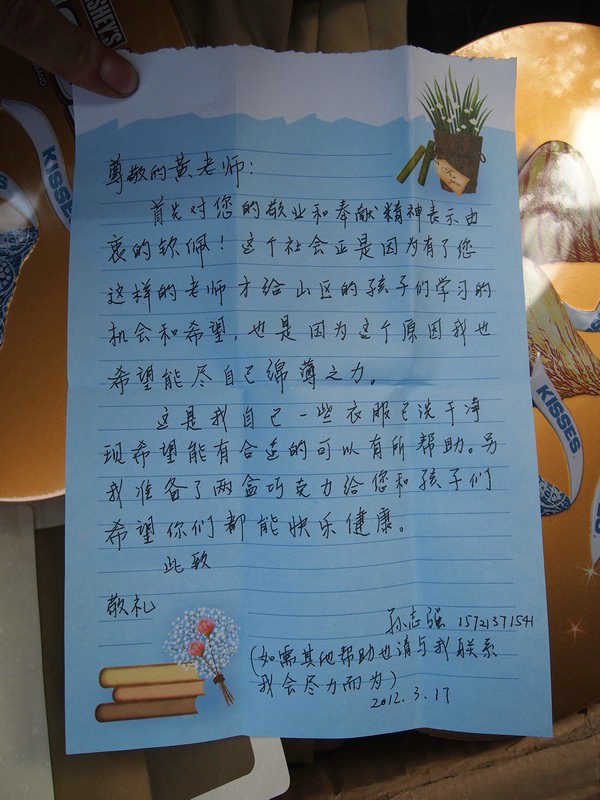 尊敬的黄老师：
首先对您的敬业和奉献精神表示由
衷的钦佩！这个社会正是因为有了您
这样的老师才给山区的孩子们学习的
机会和希望，也是因为这个原因我也
希望能尽自己绵薄之力。
这是我自己一些衣服已洗干净
现希望能有合适的可以有所帮助。另
我准备了两盒巧克力给您和孩子们
希望你们都能快乐健康。
此致
敬礼
孙志强 15721371541
(如需其他帮助也请与我联系
我会尽力而为)
2012.3.17
KISSES
KISSES